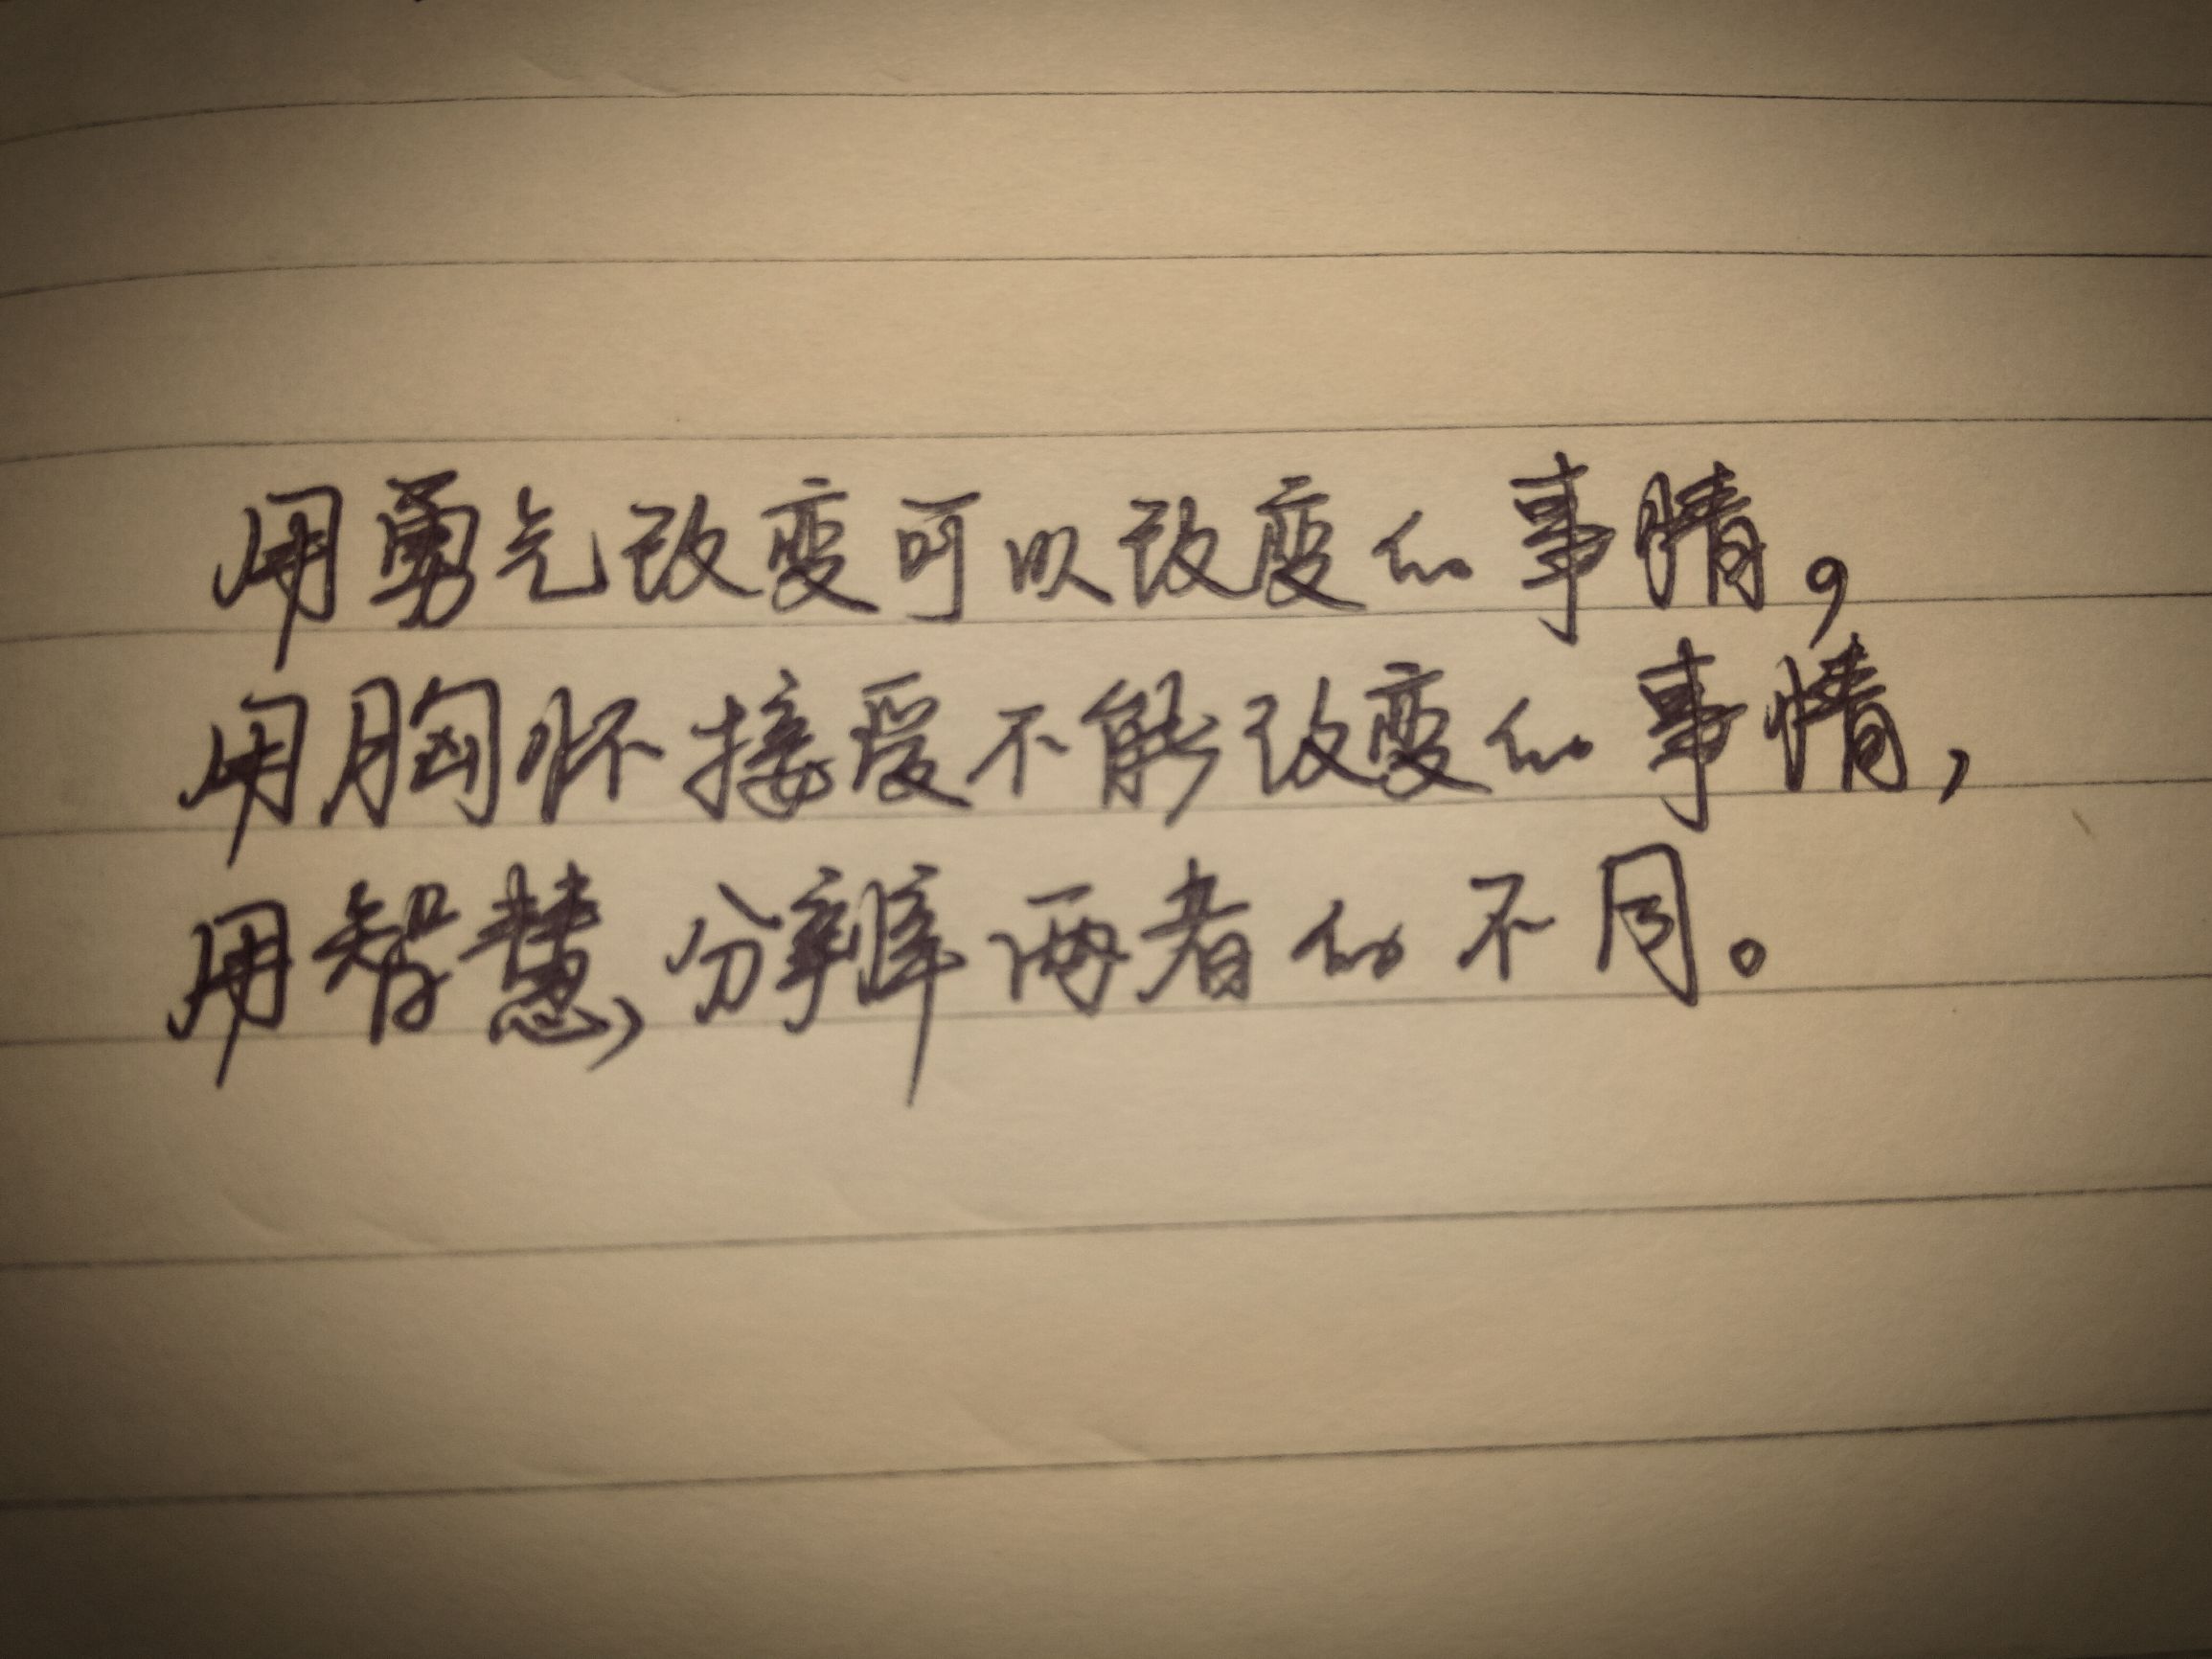 用勇气改变可以改变的事情，
用胸怀接受不能改变的事情，
用智慧，分辨两者的不同。